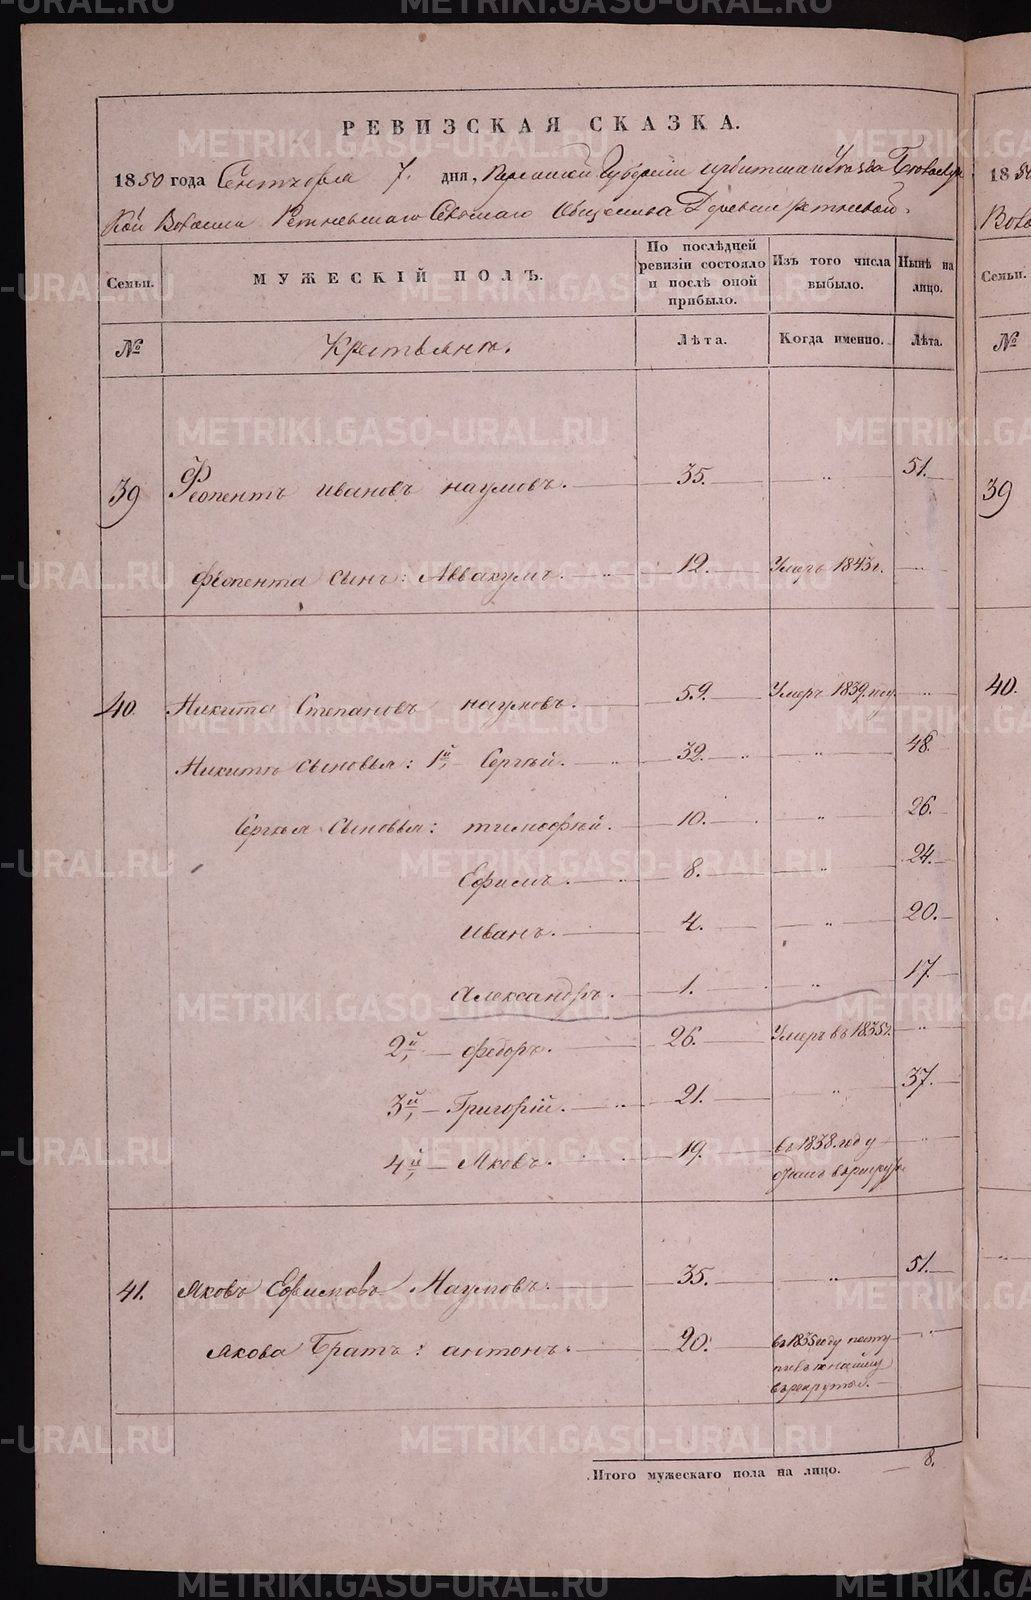 РЕВИЗСКАЯ СКАЗКА.
1850 года Сентября 7. дня, Пермской Губерніи Ирбитскаго Уезда
Кой Волости Ретневскаго Сельскаго Общества Деревни Ретневой.
Семьи.
МУЖЕСКІЙ ПОЛЪ.
По послѣдней ревизіи состояло и послѣ оной прибыло.
Изъ того числа выбыло.
Нынѣ на лицо.
№
Крестьяне.
Лѣта.
Когда именно.
Лѣта.
39 Феопентъ Ивановъ Наумовъ. 35. " 51.
Феопента сынъ: Аввакумъ. 12. Умеръ 1843 г.
40. Никита Степановъ Наумовъ. 59. Умеръ 1839. году. "
Никиты сыновья: 1й, Сергѣй. 32. " 48.
Сергѣя сыновья: Тимофѣй. 10. " 26.
Ефимъ. 8. " 24.
Иванъ. 4. " 20.
Александръ. 1. " 17.
2й, Федоръ. 26. Умеръ въ 1835 г. "
3й, Григорій. 21. " 37.
4й, Яковъ. 19. въ 1838 году "
отданъ въ рекруты
41. Яковъ Ефимовъ Наумовъ. 35. " 51.
Якова Братъ: Антонъ. 20. въ 1835 году посту "
въ рекруты.
Итого мужескаго пола на лицо. 8.
1850
Волос
Семьи.
№
39
40.
METRIKI.GASO-URAL.RU